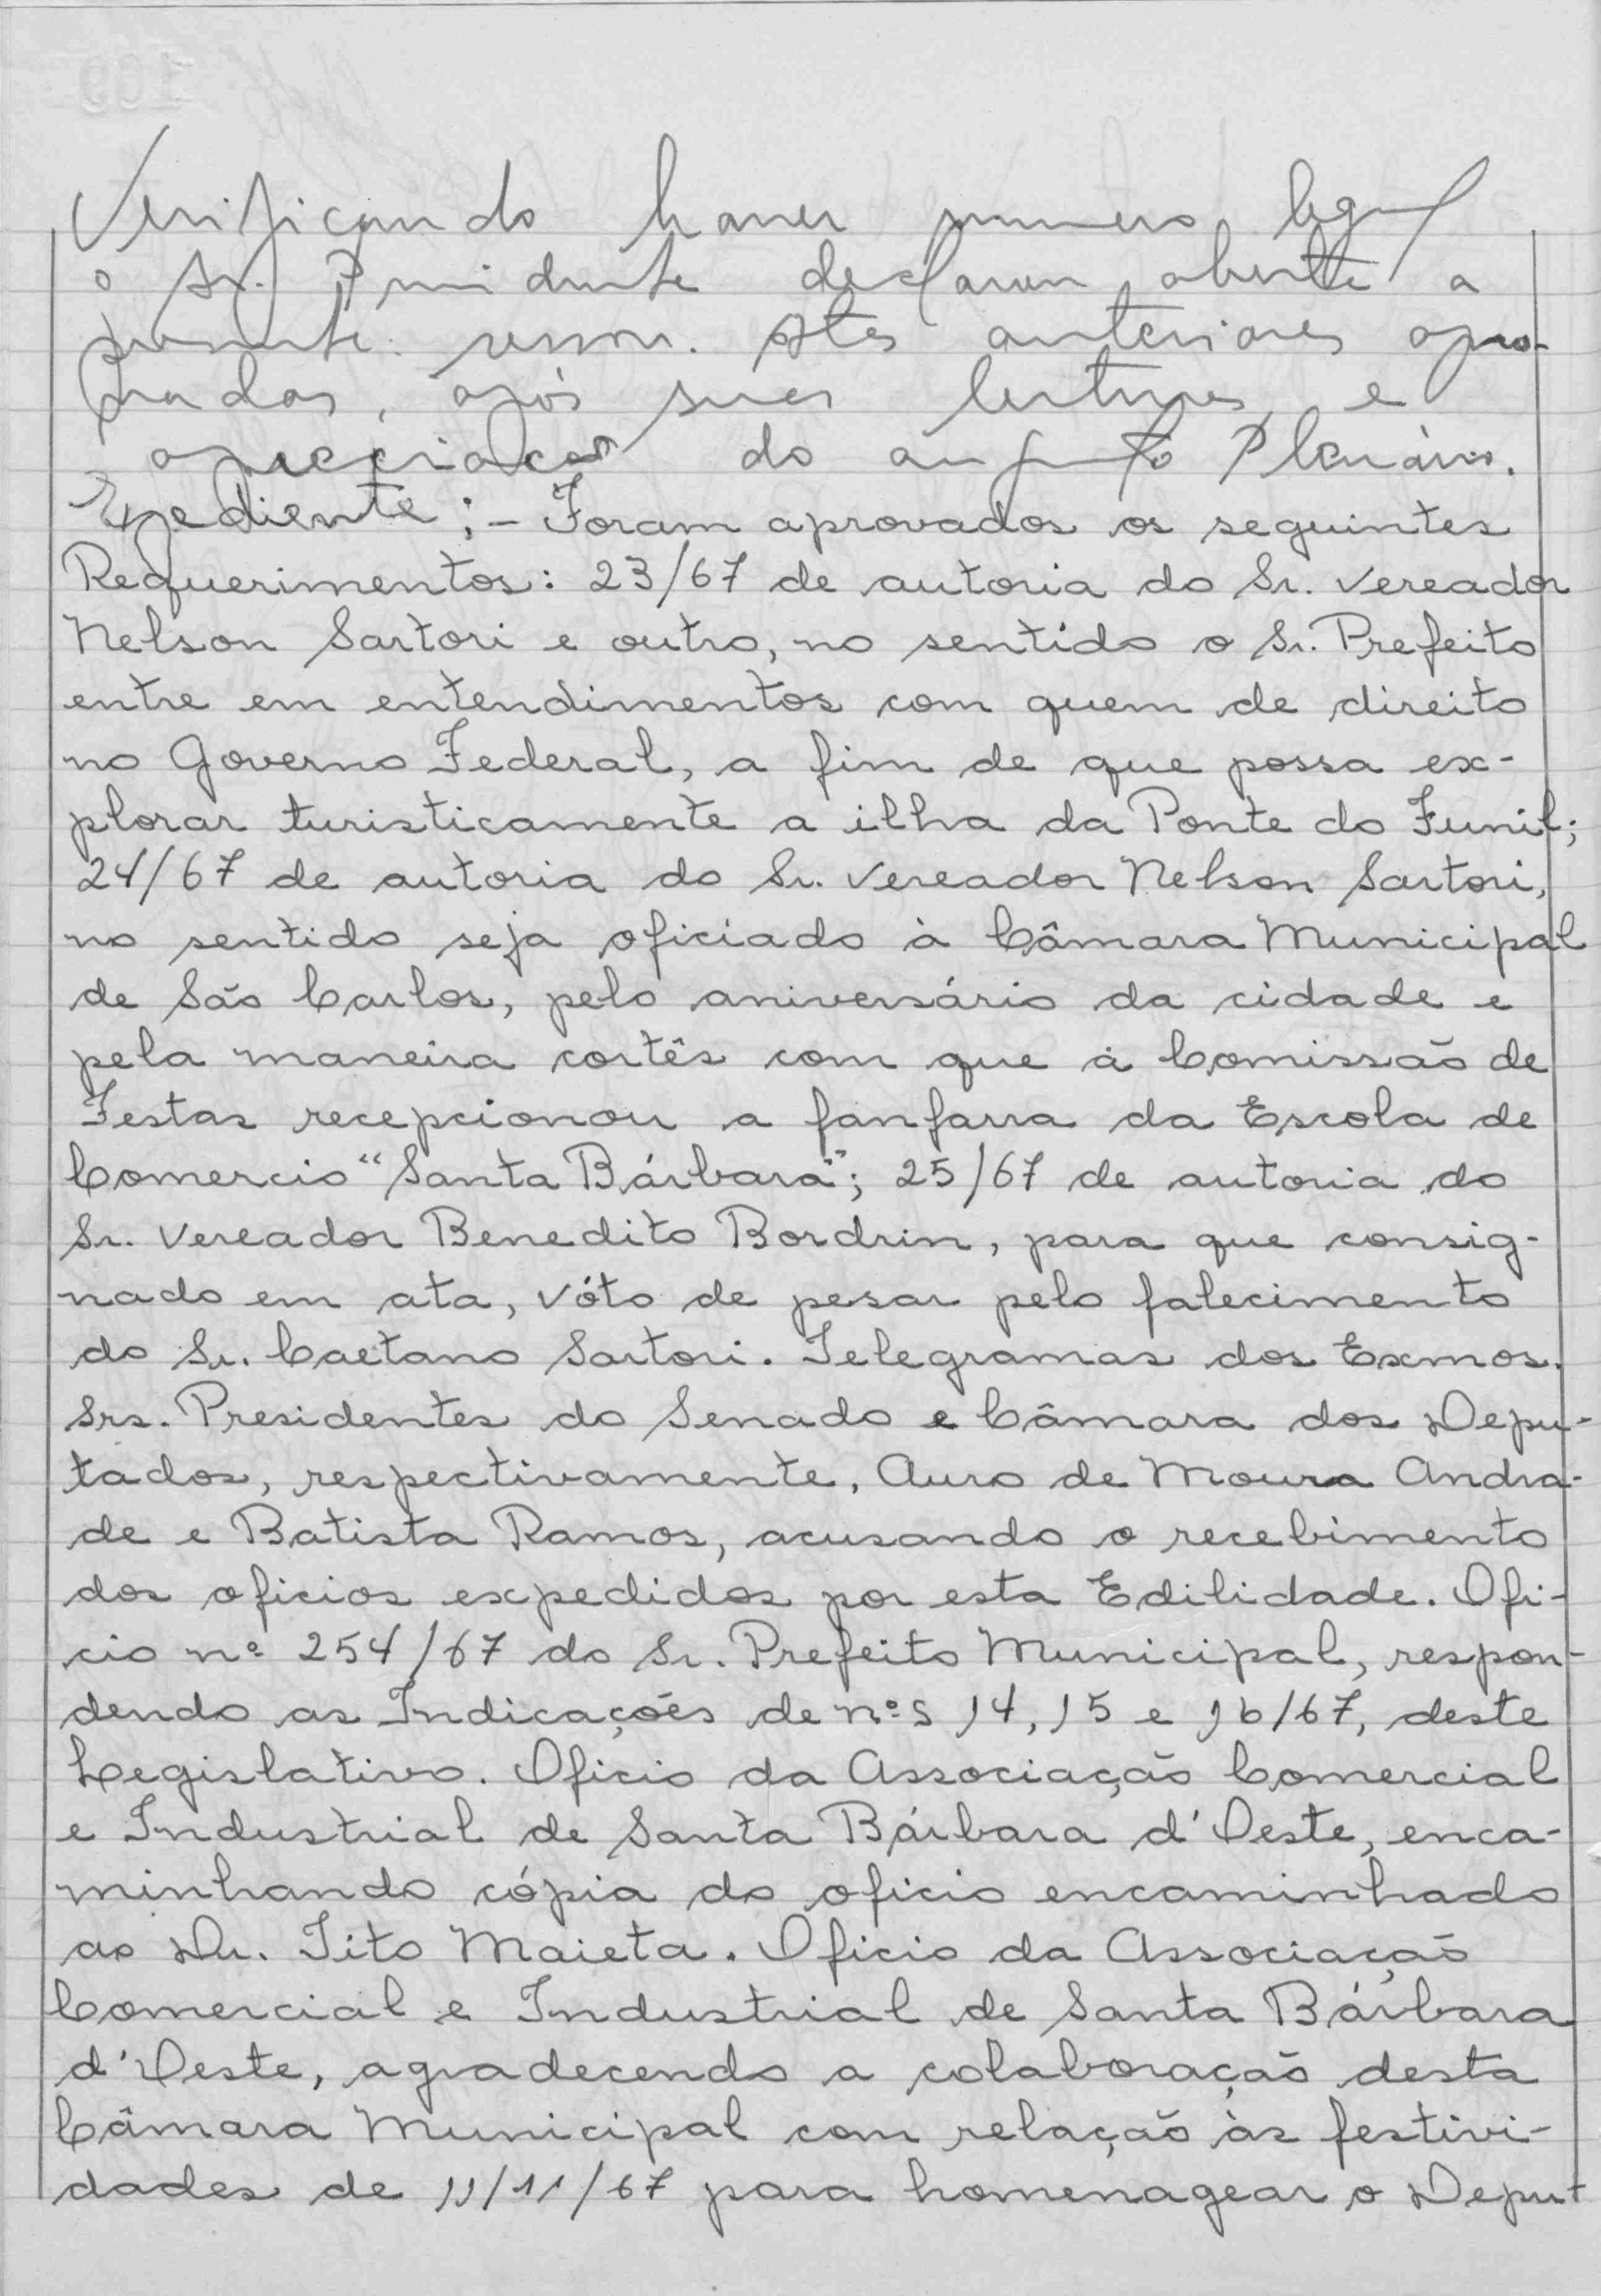 Verificando haver numero legal
o Sr. Presidente declarou aberta a
presente sessão. Atas anteriores apro-
vadas, após suas leituras e
apreciação do augusto Plenário.
Expediente ; - Foram aprovados os seguintes
Requerimentos: 23/67 de autoria do Sr. Vereador
Nelson Sartori e outro, no sentido o Sr. Prefeito
entre em entendimentos com quem de direito
no Governo Federal, a fim de que possa ex-
plorar turisticamente a ilha da Ponte do Funil;
24/67 de autoria do Sr. Vereador Nelson Sartori,
no sentido seja oficiado à Câmara Municipal
de São Carlos, pelo aniversário da cidade e
pela maneira cortês com que à Comissão de
Festas recepcionou a fanfarra da Escola de
Comercio "Santa Bárbara"; 25/67 de autoria do
Sr. Vereador Benedito Bordrin, para que consig-
nado em ata, vóto de pesar pelo falecimento
do Sr. Caetano Sartori. Telegramas dos Exmos.
Srs. Presidentes do Senado e Câmara dos Depu-
tados, respectivamente, Auro de Moura Andra-
de e Batista Ramos, acusando o recebimento
dos oficios expedidos por esta Edilidade. Ofi-
cio nº 254/67 do Sr. Prefeito Municipal, respon-
dendo as Indicações de nºs 14, 15 e 16/67, deste
Legislativo. Oficio da Associação Comercial
e Industrial de Santa Bárbara d'Oeste, enca-
minhando cópia do oficio encaminhado
ao Dr. Tito Maieta. Oficio da Associação
Comercial e Industrial de Santa Bárbara
d'Oeste, agradecendo a colaboração desta
Câmara Municipal com relação às festivi-
dades de 11/11/67 para homenagear o Deput